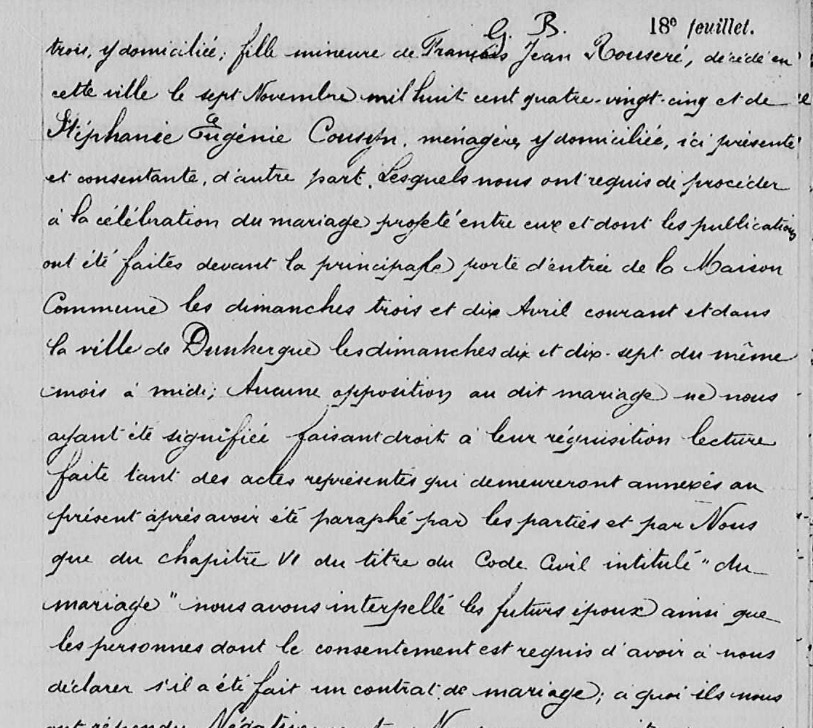 G. B. 18e feuillet.
trois, y domiciliée; fille mineure de François Jean Rouseré, décédé en
cette ville le sept Novembre mil huit cent quatre-vingt-cinq et de
Stéphanie Eugénie Cousyn, ménagère, y domiciliée, ici présente
et consentante, d'autre part. Lesquels nous ont requis de procéder
à la célébration du mariage projeté entre eux et dont les publications
ont été faites devant la principale porte d'entrée de la Maison
Commune les dimanches trois et dix Avril courant et dans
la ville de Dunkerque les dimanches dix et dix-sept du même
mois à midi; Aucune opposition au dit mariage ne nous
ayant été signifiée faisant droit à leur réquisition lecture
faite tant des actes représentés qui demeureront annexés au
présent après avoir été paraphé par les parties et par Nous
que du chapitre VI du titre du Code Civil intitulé "du
mariage" nous avons interpellé les futurs époux ainsi que
les personnes dont le consentement est requis d'avoir à nous
déclarer s'il a été fait un contrat de mariage; à quoi ils nous
ont répondu